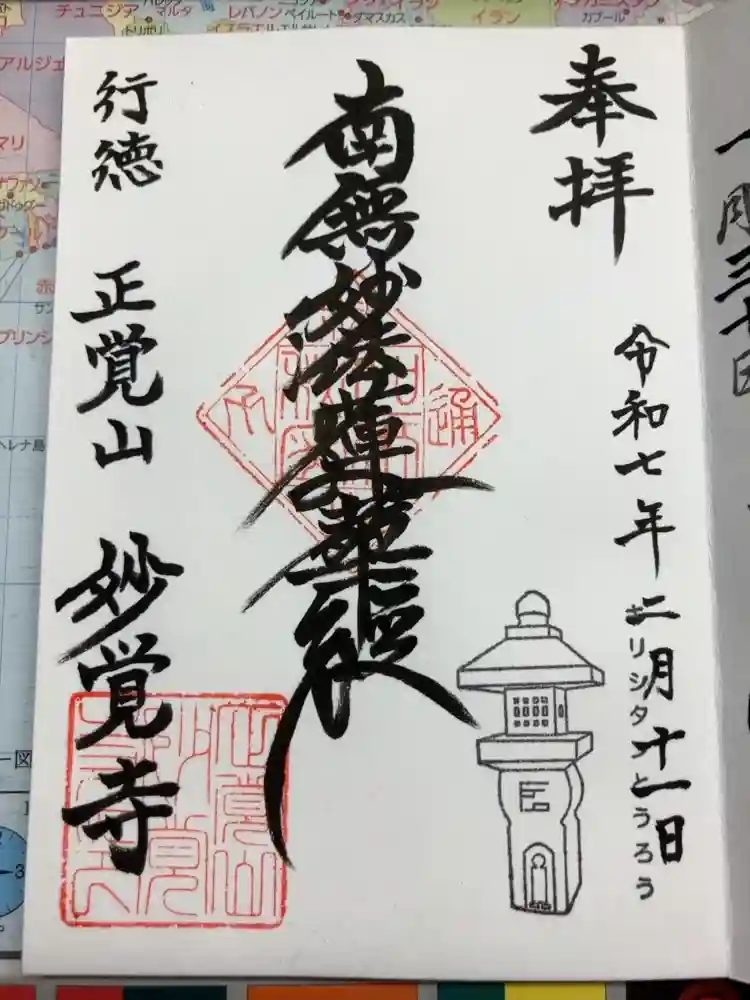 奉拝
令和七年二月十一日
キリシタンとうろう
南無妙法蓮華経
行徳 正覚山 妙覚寺
通
正覚山
妙覚
一月三十日
チュニジア
マルタ
トリポリ
レバノン
ベイルート
ダマスカス
イラン
カブール
アルジェ
マリ
ヘレナ島
プリンシ
赤